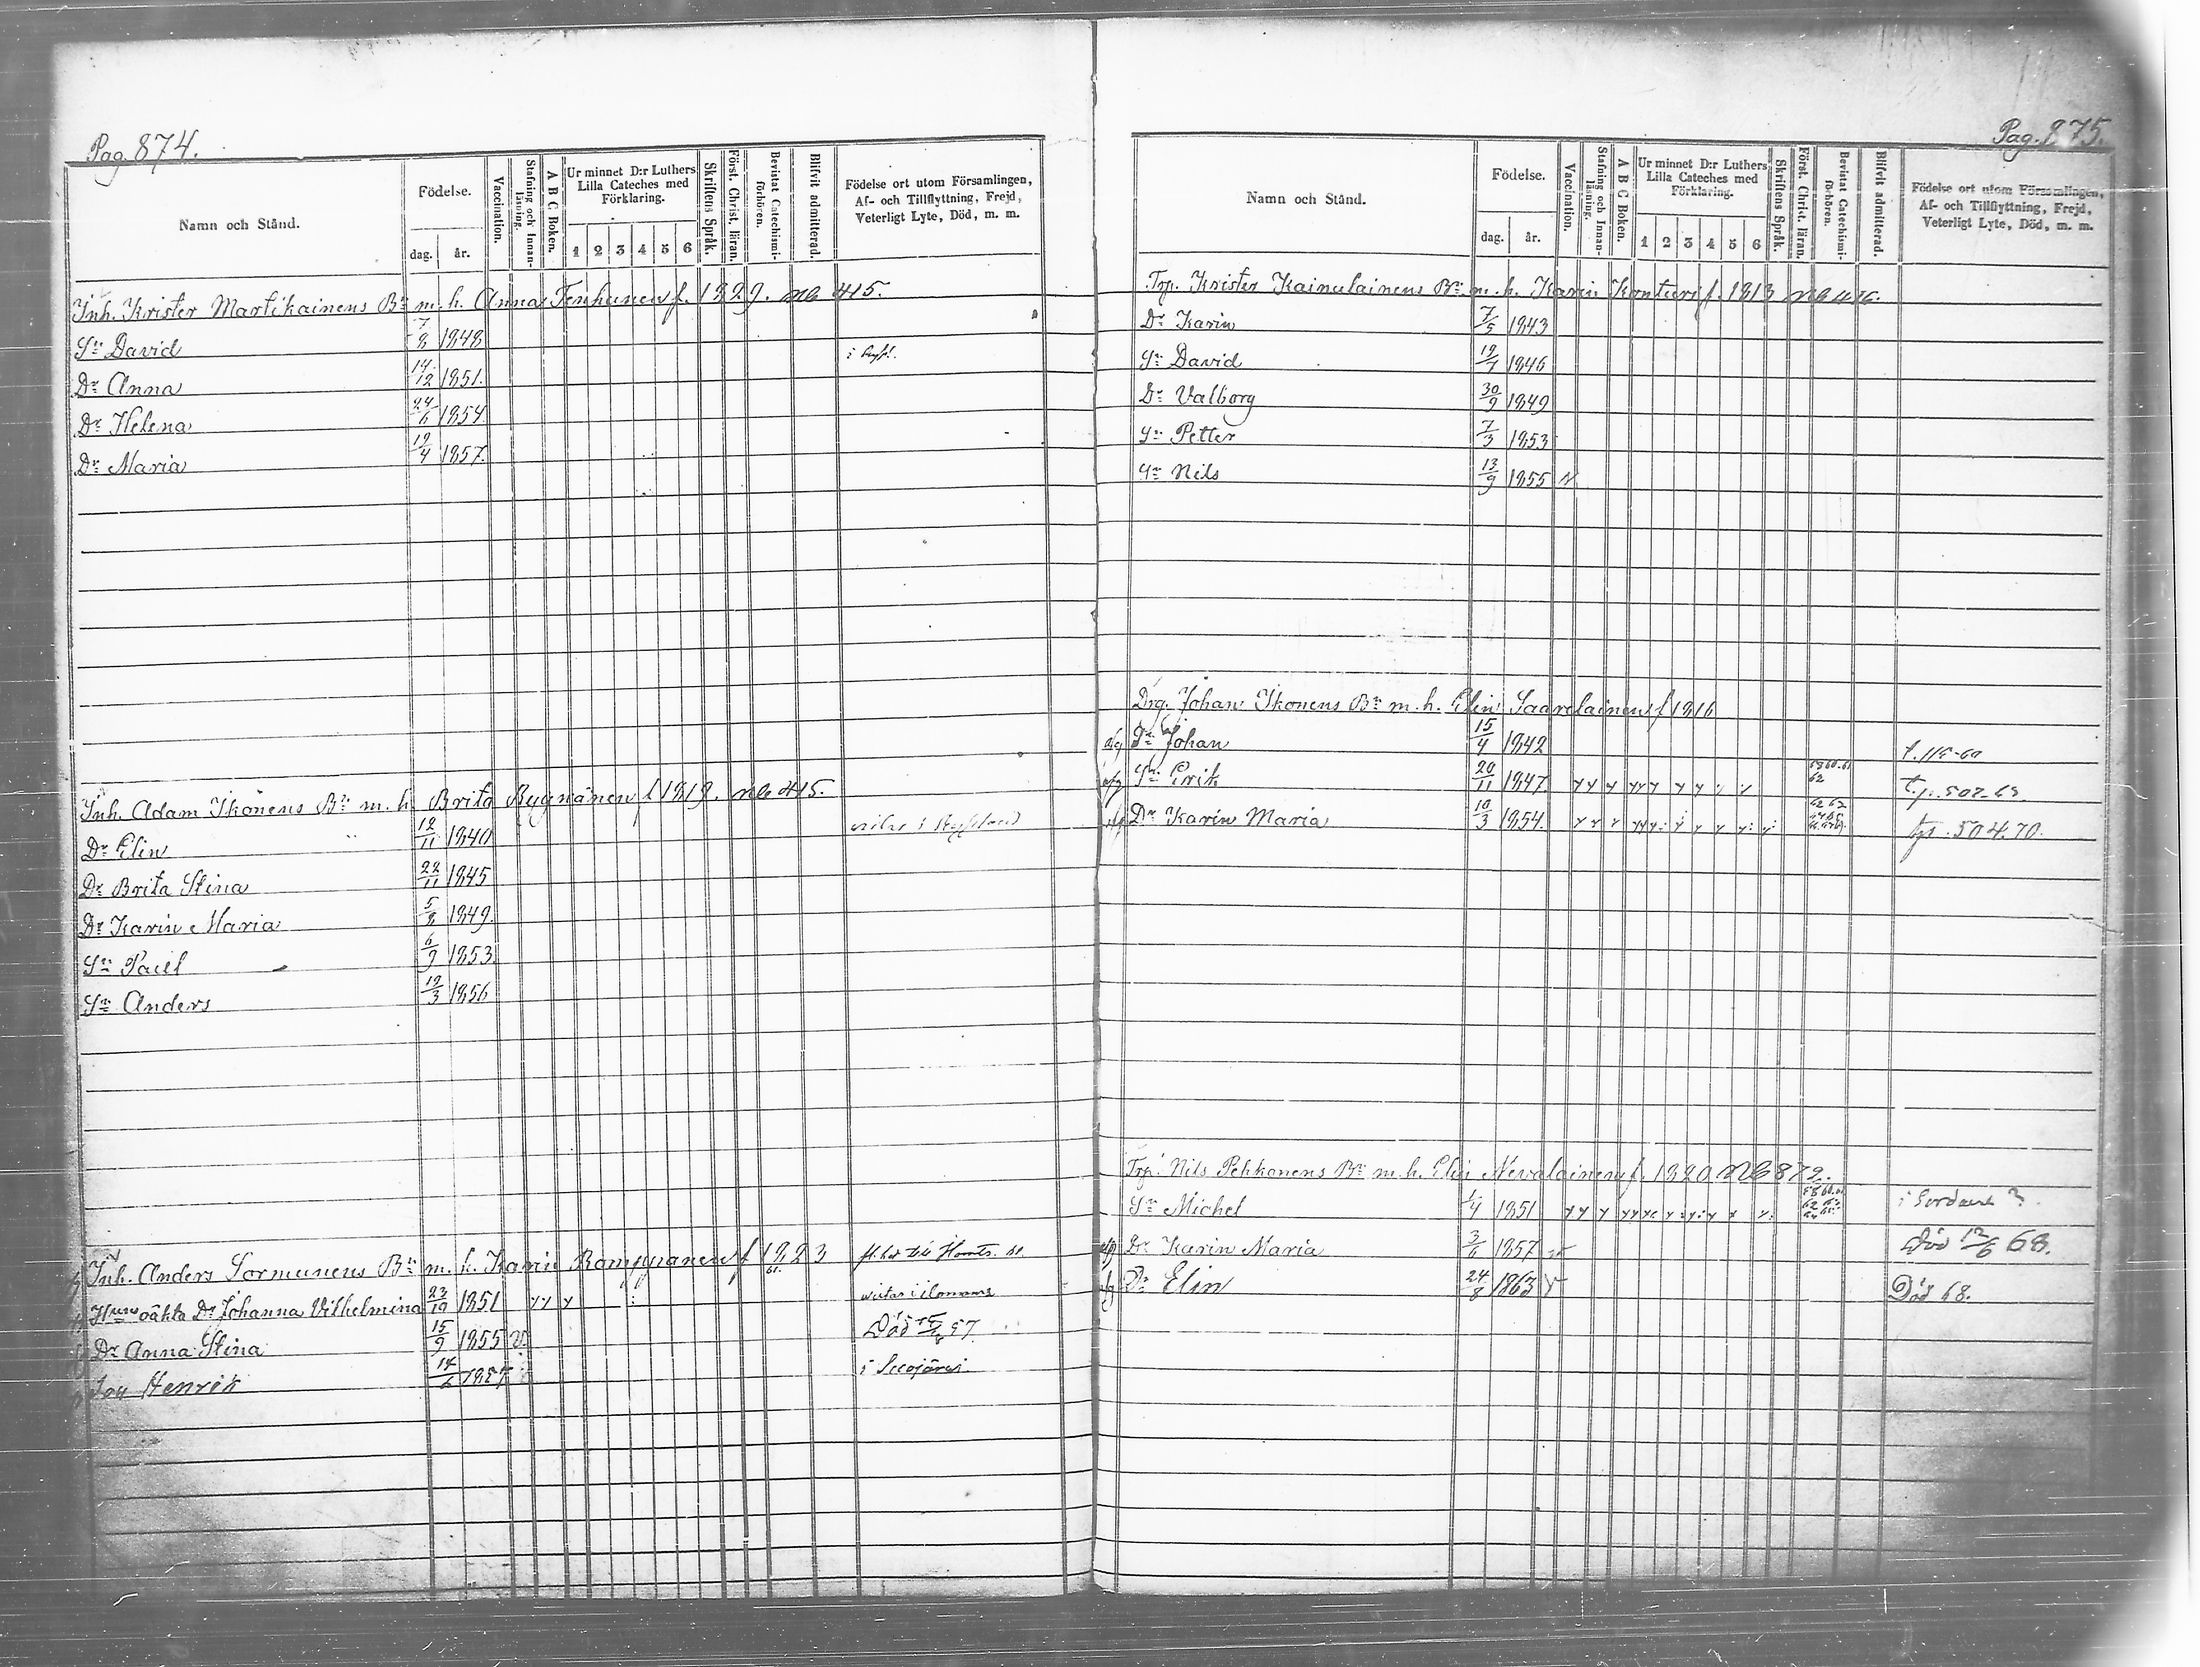 Pag. 874.
Namn och Stånd.
Födelse.
dag.
år.
Vaccination.
Stafning och Innanläsning.
A B C Boken.
Ur minnet D:r Luthers Lilla Cateches med Förklaring.
1 2 3 4 5 6
Skriftens Språk.
Först. Christ. läran.
Bevistat Catechismiförhören.
Blifvit admitterad.
Födelse ort utom Församlingen, Af- och Tillflyttning, Frejd, Veterligt Lyte, Död, m. m.
Inh. Krister Martikainens Bn m. h. Anna Tenhunen f. 1829. 415.
Sn David 7/8 1848
Dr Anna 14/12 1851.
Dr Helena 24/6 1854.
Dr Maria 19/4 1857.
Inh. Adam Ikonens Bn m. h. Brita f 1819. 415.
Dr Elin 12/11 1840
Dr Brita Stina 22/11 1845
Dr Karin Maria 5/8 1849.
Sn Pauel 6/9 1853.
Sn Anders 19/3 1856
Inh. Anders Sormunens Bn m. h. Karin f 1823
Dr Johanna Vilhelmina 23/10 1851
Dr Anna Stina 15/9 1855 v. Död 57
Son Henrik 1857
Pag. 875.
Namn och Stånd.
Födelse.
dag.
år.
Vaccination.
Stafning och Innanläsning.
A B C Boken.
Ur minnet D:r Luthers Lilla Cateches med Förklaring.
1 2 3 4 5 6
Skriftens Språk.
Först. Christ. läran.
Bevistat Catechismiförhören.
Blifvit admitterad.
Födelse ort utom Församlingen, Af- och Tillflyttning, Frejd, Veterligt Lyte, Död, m. m.
Trp. Krister Kainulainens Bn m. h. Karin Konturi f. 1813
Dr Karin 7/5 1843
Sn David 1846
Dr Valborg 30/9 1849
Sn Petter 7/3 1853
Sn Nils 13/9 1855
Drg. Johan Ikonens Bn m. h. Elin Saarelainen f 1816
Johan 15/4 1842
Sn Erik 20/11 1847
Dr Karin Maria 10/3 1854. 504.70.
Trp. Nils Pehkonens Bn m. h. Elin Nevalainen f. 1820 872.
Sn Michel 1/4 1851
Dr Karin Maria 3/6 1857 Död 12/6 68.
Dr Elin 24/8 1863 Död 68.